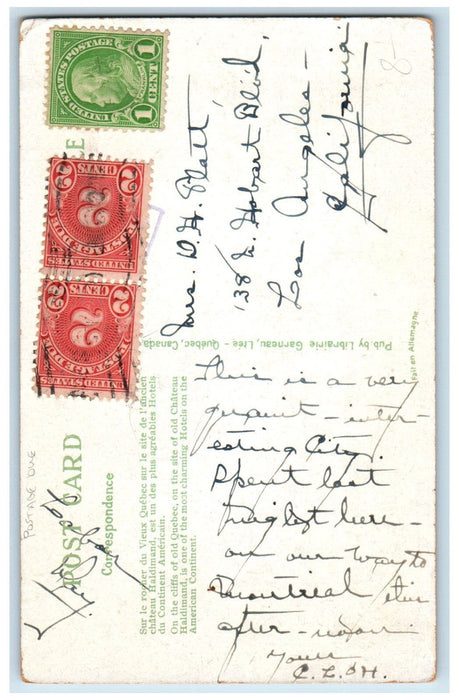 UNITED STATES POSTAGE
1 CENT 1
2 CENTS 2
2
POSTAGE DUE
UNITED STATES
2 CENTS 2
2
POSTAGE DUE
UNITED STATES
POST CARD
Correspondence
POSTAGE DUE
Sur le rocher du Vieux Québec sur le site de l'ancien
château Haldimand, est un des plus agréables Hotels
du Continent Américain.
On the cliffs of old Quebec, on the site of old Château
Haldimand, is one of the most charming Hotels on the
American Continent.
Pub by Librairie Garneau, Ltée - Québec, Canada
Fait en Allemagne
Mrs. D. H. Platt
138 N. Hobart Blvd.
Los Angeles -
California
8-
This is a very
quaint - inter-
esting City.
Spent last
night here -
on our way to
Montreal this
after - noon
Yours
C. L. H.